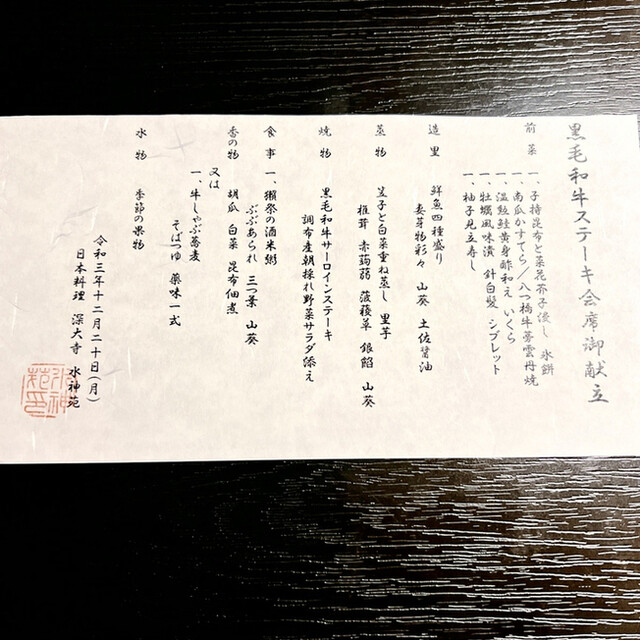 黒毛和牛ステーキ会席御献立
前菜
一、子持昆布と菜花芥子浸し 氷餅
一、南瓜かすてら/八つ橋牛蒡雲丹焼
一、温鮭黄身酢和え いくら
一、牡蠣風味漬 針白髪 シブレット
一、柚子見立寿し
造里 鮮魚四種盛り
妻芽物彩々 山葵 土佐醤油
蒸物 笠子と白菜重ね蒸し 里芋
椎茸 赤蒟蒻 菠薐草 銀餡 山葵
焼物 黒毛和牛サーロインステーキ
調布産朝採れ野菜サラダ添え
食事 一、獺祭の酒米粥
ぶぶあられ 三つ葉 山葵
香の物 胡瓜 白菜 昆布佃煮
又は
一、牛しゃぶ蕎麦
そばつゆ 薬味一式
水物 季節の果物
令和三年十二月二十日(月)
日本料理 深大寺 水神苑